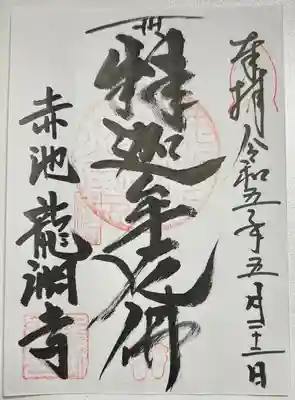 奉拝 令和五年五月三十一日
釈迦牟尼佛
赤池 龍渕寺